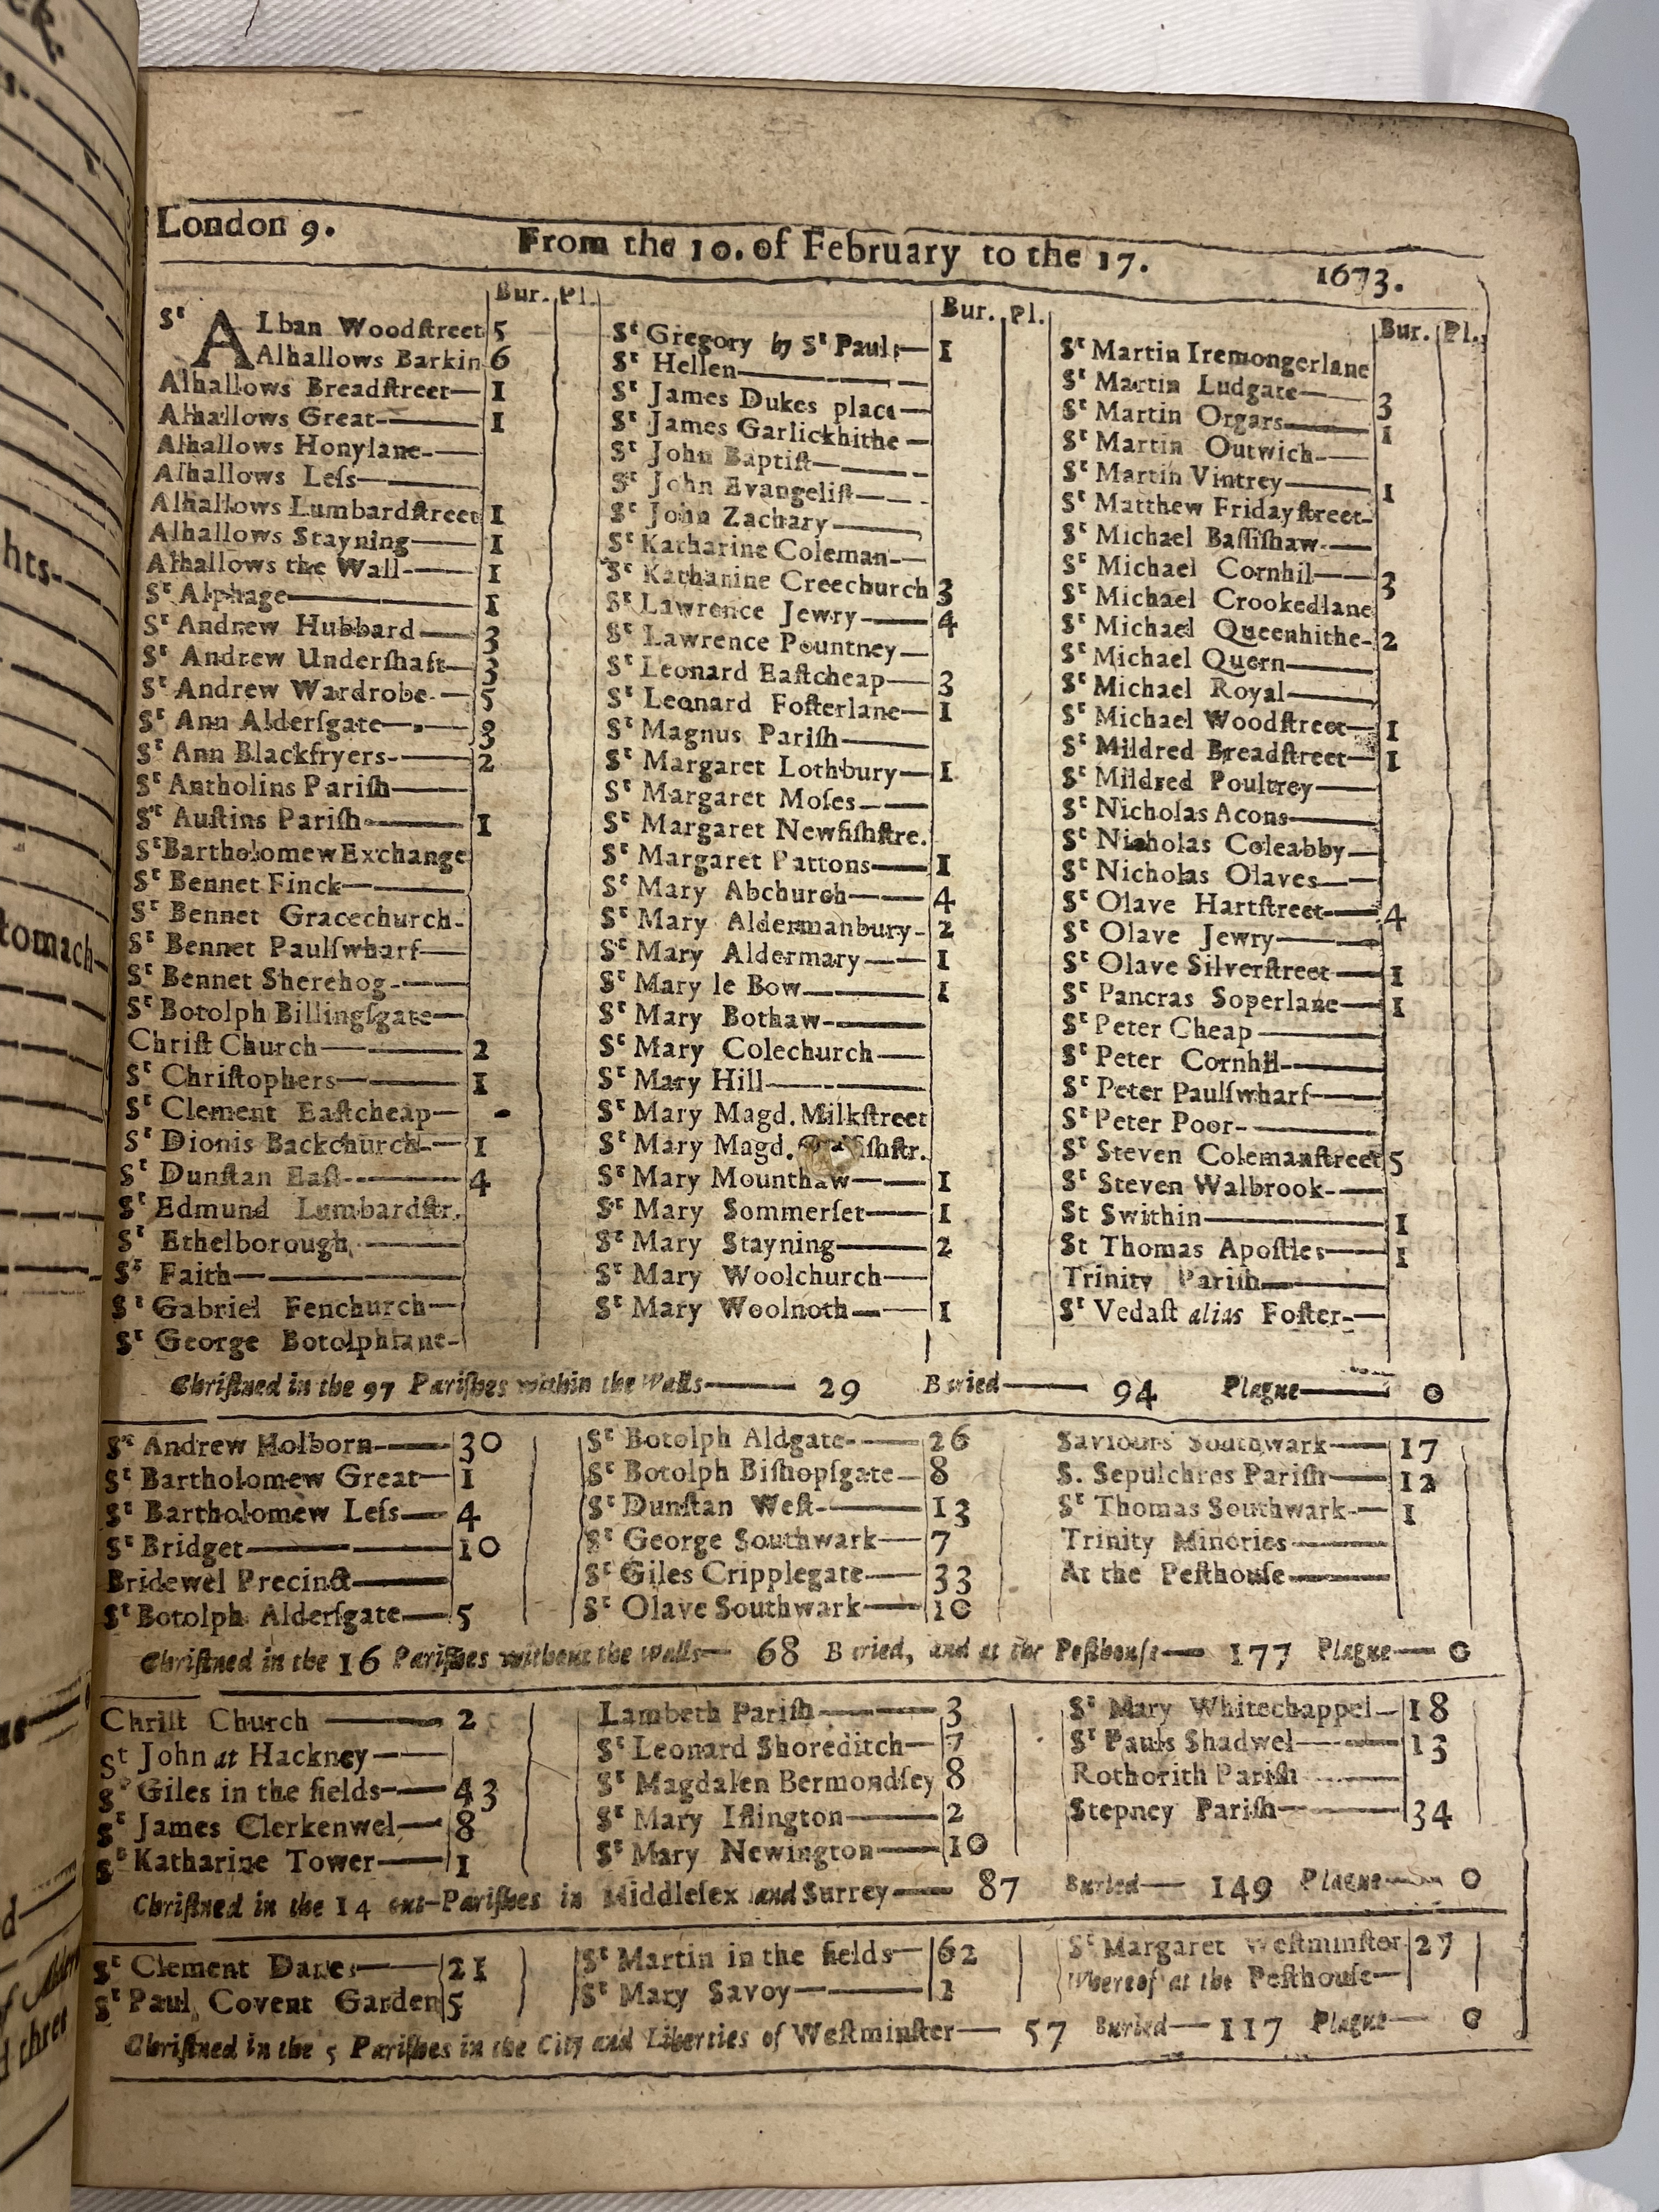 London 9. From the 10. of February to the 17. 1673.
Bur. Pl.
Sᵗ ALban Woodſtreet 5
Alhallows Barkin 6
Alhallows Breadſtreet— 1
Alhallows Great— 1
Alhallows Honylane—
Alhallows Leſs—
Alhallows Lumbardſtreet 1
Alhallows Stayning— 1
Alhallows the Wall— 1
Sᵗ Alphage— 1
Sᵗ Andrew Hubbard— 3
Sᵗ Andrew Underſhaft— 3
Sᵗ Andrew Wardrobe— 5
Sᵗ Ann Alderſgate— 3
Sᵗ Ann Blackfryers— 2
Sᵗ Antholins Pariſh—
Sᵗ Auſtins Pariſh— 1
Sᵗ Bartholomew Exchange
Sᵗ Bennet Finck—
Sᵗ Bennet Gracechurch-
Sᵗ Bennet Paulſwharf—
Sᵗ Bennet Sherehog—
Sᵗ Botolph Billingſgate—
Chriſt Church— 2
Sᵗ Chriſtophers— 1
Sᵗ Clement Eaſtcheap—
Sᵗ Dionis Backchurch— 1
Sᵗ Dunſtan Eaſt— 4
Sᵗ Edmund Lumbardſtr.
Sᵗ Ethelborough—
Sᵗ Faith—
Sᵗ Gabriel Fenchurch—
Sᵗ George Botolphlane-
Bur. Pl.
Sᵗ Gregory by Sᵗ Pauls— 1
Sᵗ Hellen—
Sᵗ James Dukes place—
Sᵗ James Garlickhithe—
Sᵗ John Baptiſt—
Sᵗ John Evangeliſt—
Sᵗ John Zachary—
Sᵗ Katharine Coleman—
Sᵗ Katharine Creechurch 3
Sᵗ Lawrence Jewry— 4
Sᵗ Lawrence Pountney—
Sᵗ Leonard Eaſtcheap— 3
Sᵗ Leonard Foſterlane— 1
Sᵗ Magnus Pariſh—
Sᵗ Margaret Lothbury— 1
Sᵗ Margaret Moſes—
Sᵗ Margaret Newfiſhſtre.
Sᵗ Margaret Pattons— 1
Sᵗ Mary Abchurch— 4
Sᵗ Mary Aldermanbury- 2
Sᵗ Mary Aldermary— 1
Sᵗ Mary le Bow— 1
Sᵗ Mary Bothaw—
Sᵗ Mary Colechurch—
Sᵗ Mary Hill—
Sᵗ Mary Magd. Milkſtreet
Sᵗ Mary Magd. fiſhſtr.
Sᵗ Mary Mounthaw— 1
Sᵗ Mary Sommerſet— 1
Sᵗ Mary Stayning— 2
Sᵗ Mary Woolchurch—
Sᵗ Mary Woolnoth— 1
Bur. Pl.
Sᵗ Martin Iremongerlane
Sᵗ Martin Ludgate— 3
Sᵗ Martin Orgars— 1
Sᵗ Martin Outwich—
Sᵗ Martin Vintrey— 1
Sᵗ Matthew Fridayſtreet-
Sᵗ Michael Baſſiſhaw—
Sᵗ Michael Cornhil— 3
Sᵗ Michael Crookedlane
Sᵗ Michael Queenhithe- 2
Sᵗ Michael Quern—
Sᵗ Michael Royal—
Sᵗ Michael Woodſtreet— 1
Sᵗ Mildred Breadſtreet— 1
Sᵗ Mildred Poultrey—
Sᵗ Nicholas Acons—
Sᵗ Nicholas Coleabby—
Sᵗ Nicholas Olaves—
Sᵗ Olave Hartſtreet— 4
Sᵗ Olave Jewry—
Sᵗ Olave Silverſtreet— 1
Sᵗ Pancras Soperlane— 1
Sᵗ Peter Cheap—
Sᵗ Peter Cornhil—
Sᵗ Peter Paulſwharf—
Sᵗ Peter Poor—
Sᵗ Steven Colemanſtreet 5
Sᵗ Steven Walbrook—
St Swithin— 1
St Thomas Apoſtles— 1
Trinity Pariſh—
Sᵗ Vedaſt alias Foſter—
Chriſtned in the 97 Pariſhes within the Walls— 29 Buried— 94 Plague— 0
Sᵗ Andrew Holborn— 30
Sᵗ Bartholomew Great— 1
Sᵗ Bartholomew Leſs— 4
Sᵗ Bridget— 10
Bridewel Precinct—
Sᵗ Botolph Alderſgate— 5
Sᵗ Botolph Aldgate— 26
Sᵗ Botolph Biſhopſgate— 8
Sᵗ Dunſtan Weſt— 13
Sᵗ George Southwark— 7
Sᵗ Giles Cripplegate— 33
Sᵗ Olave Southwark— 10
Saviours Southwark— 17
S. Sepulchres Pariſh— 12
Sᵗ Thomas Southwark— 1
Trinity Minories—
At the Peſthouſe—
Chriſtned in the 16 Pariſhes without the Walls— 68 Buried, and at the Peſthouſe— 177 Plague— 0
Chriſt Church— 2
St John at Hackney—
Sᵗ Giles in the fields— 43
Sᵗ James Clerkenwel— 8
Sᵗ Katharine Tower— 1
Lambeth Pariſh— 3
Sᵗ Leonard Shoreditch— 7
Sᵗ Magdalen Bermondſey 8
Sᵗ Mary Iſlington— 2
Sᵗ Mary Newington— 10
Sᵗ Mary Whitechappel— 18
Sᵗ Pauls Shadwel— 13
Rothorith Pariſh—
Stepney Pariſh— 34
Chriſtned in the 14 out-Pariſhes in Middleſex and Surrey— 87 Buried— 149 Plague— 0
Sᵗ Clement Danes— 21
Sᵗ Paul Covent Garden 5
Sᵗ Martin in the fields— 62
Sᵗ Mary Savoy— 2
Sᵗ Margaret Weſtminſter 27
Whereof at the Peſthouſe—
Chriſtned in the 5 Pariſhes in the City and Liberties of Weſtminſter— 57 Buried— 117 Plague— 0
hts-
tomach-